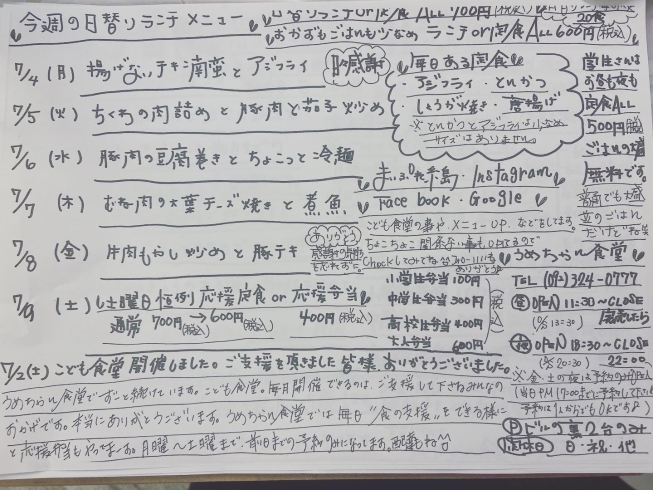 今週の日替りランチメニュー
日替りランチor定食 ALL 700円(税込)
20食
おかずもごはんも少なめ ランチor定食 ALL 600円(税込)
7/4 (月) 揚げないチキン南蛮とアジフライ
日々感謝
7/5 (火) ちくわの肉詰めと豚肉と茄子炒め
7/6 (水) 豚肉の豆腐巻きとちょこっと冷麺
7/7 (木) むね肉の大葉チーズ焼きと煮魚
7/8 (金) 牛肉もやし炒めと豚テキ
ありがとう
7/9 (土) 土曜日恒例応援定食or応援弁当
通常 700円(税込)→600円(税込) 400円(税込)
毎日ある定食
・アジフライ・とんかつ
・しょうが焼き・唐揚げ
※とんかつとアジフライは少なめ
サイズはありません。
学生さんは
お昼も夜も
定食ALL
500円(税込)
ごはんの大盛
無料です。
・Instagram
Face book・Google
こども食堂の事や、メニューUP、などをしてます。
小学生弁当 100円
中学生弁当 300円
高校生弁当 400円
大人弁当 600円
税込
うめちゃん食堂
TEL (092)324-0777
昼 OPEN 11:30~CLOSE
夜 OPEN 18:30~CLOSE
(%20:30) 22:00
※金・土の夜は予約のみOPEN
Ⓟビルの裏2台のみ
店休日 日・祝・他
7/2(土)こども食堂開催しました。ご支援を頂きました皆様、ありがとうございました。
うめちゃん食堂でずーと続けています。こども食堂。毎月開催できるのは、ご支援して下さるみんなの
おかげです。本当にありがとうございます。うめちゃん食堂では毎日"食の支援"をできる様に
と応援弁当もやってまーす。月曜~土曜まで、前日までの予約のみになってます。配達もね